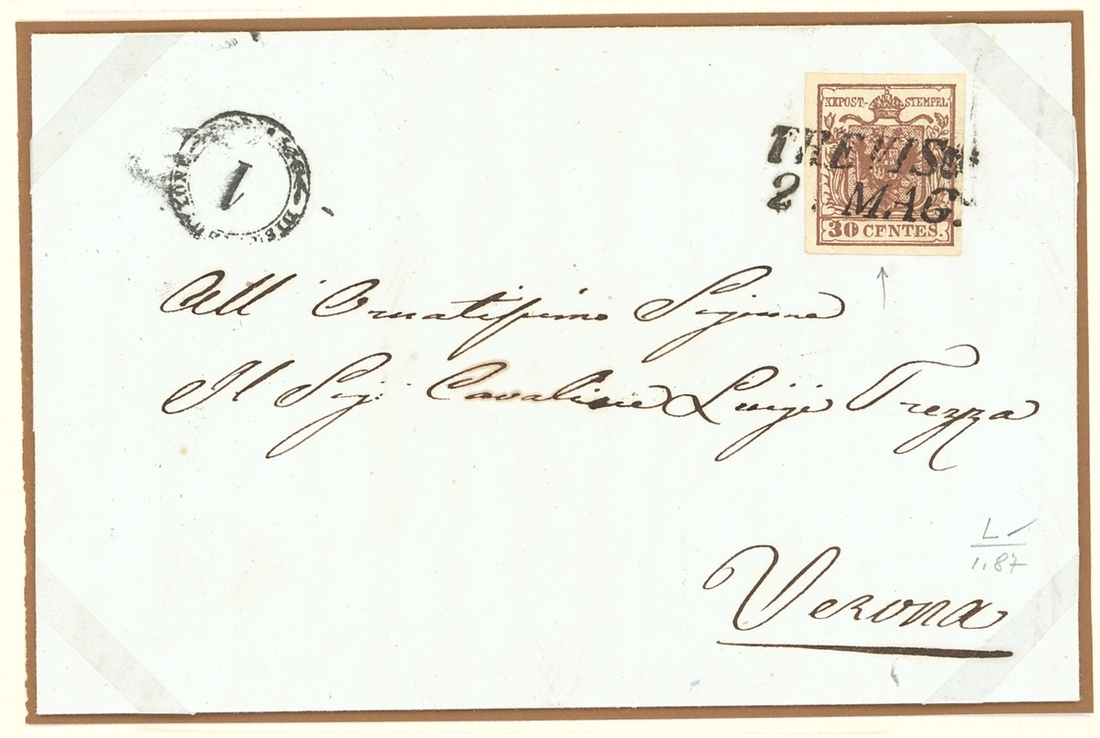 KKPOST-STEMPEL
TREVISO
2. MAG.
30 CENTES.
1
DISTRIBUZIONE
All' Ornatissimo Signore
Il Sig: Cavaliere Luigi Trezza
L
1.87
Verona